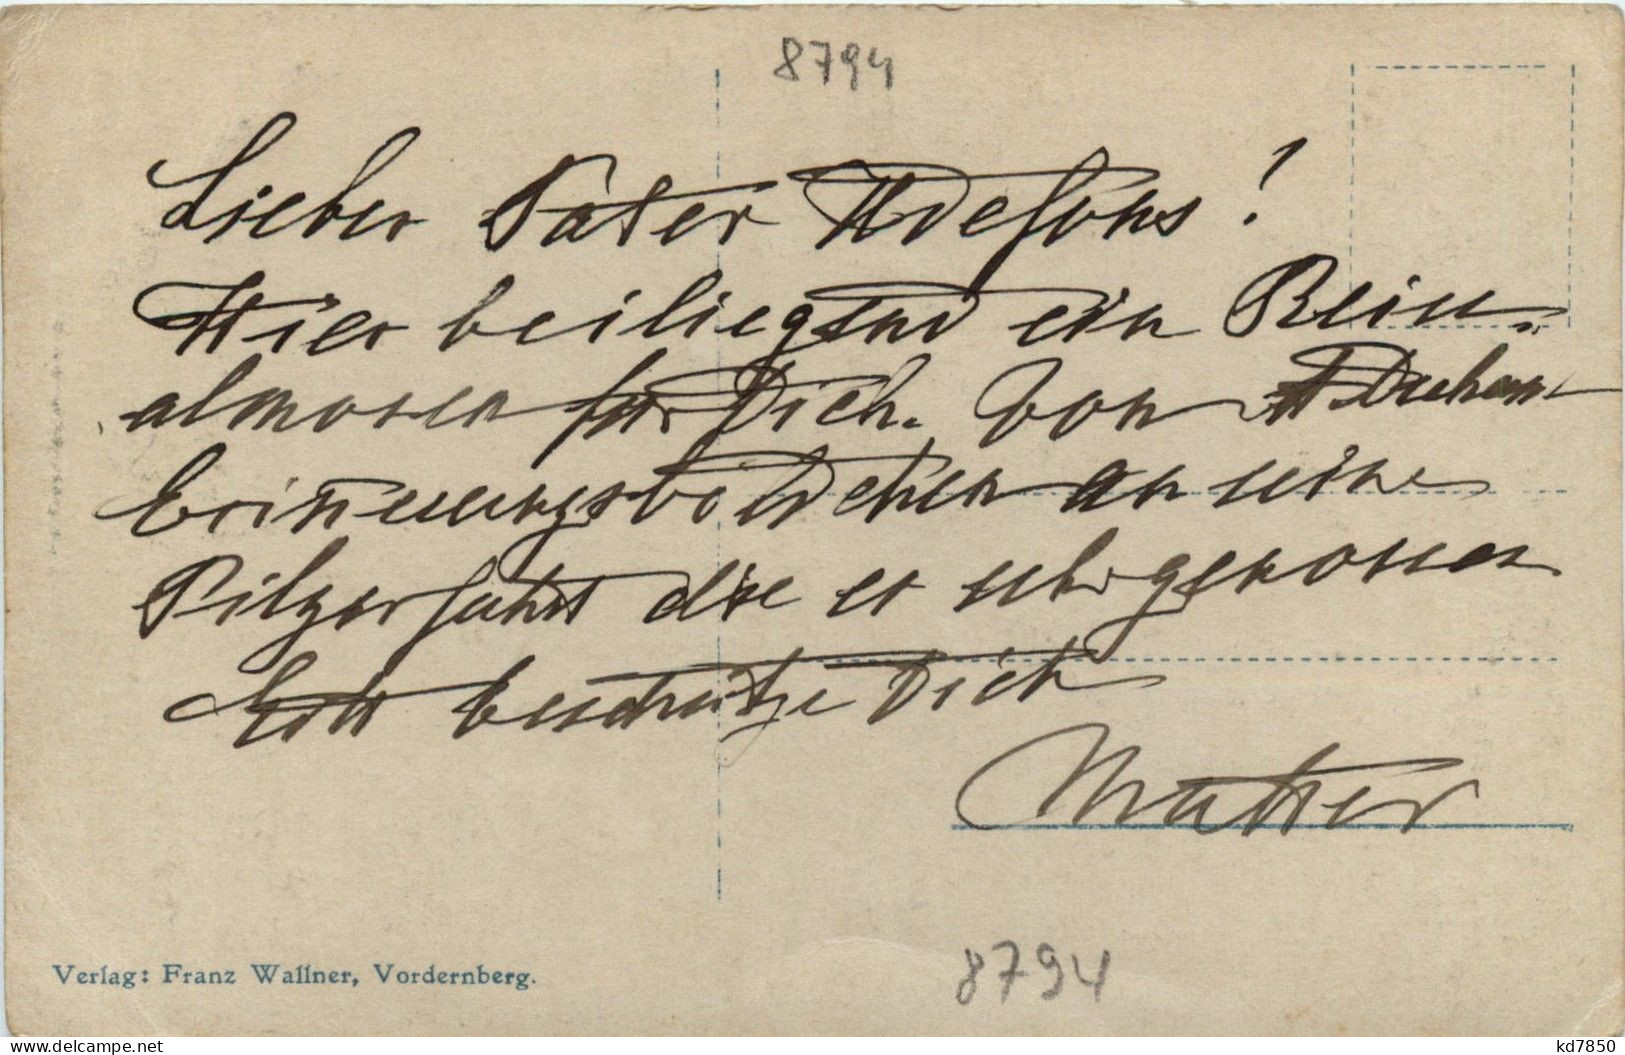 8794
Lieber Pater Ildefons!
Hier beiliegend ein
almosen für Dich. Von
Erinnerungsbildchen an seine
Pilgerfahrt die er sehr genossen
Gott beschütze Dich
Mutter
Verlag: Franz Wallner, Vordernberg.
8794
delcampe.net
kd7850